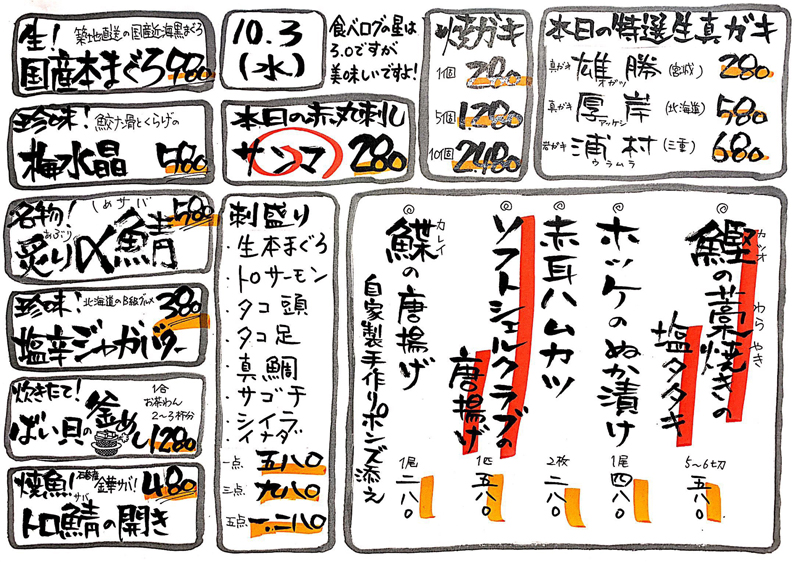 生！
築地直送の国産近海黒まぐろ
国産本まぐろ 980
珍味！
鮫ナン骨とくらげの
梅水晶 580
名物！
しめサバ
580
あぶり
炙り〆鯖
珍味！
北海道のB級グルメ
380
塩辛ジャガバター
炊きたて！
1合
お茶わん
2〜3杯分
ばい貝の釜めし 1280
焼魚！
石巻産
金華サバ！
480
サバ
トロ鯖の開き
10.3
(水)
食べログの星は
3.0ですが
美味しいですよ！
本日の赤丸刺し
サンマ 280
刺盛り
・生本まぐろ
・トロサーモン
・タコ頭
・タコ足
・真鯛
・サゴチ
・シイラ
イナダ
一点 五八〇
三点 九八〇
五点 一、二八〇
焼ガキ
1個 280
5個 1.280
10個 2.480
本日の特選生真ガキ
真ガキ 雄勝 (宮城) 280
オガツ
真ガキ 厚岸 (北海道) 580
アッケシ
岩ガキ 浦村 (三重) 680
ウラムラ
カツオ
わらやき
鰹の藁焼きの
塩タタキ
5〜6切
五八〇
ホッケのぬか漬け
1尾
四八〇
赤耳ハムカツ
2枚
二八〇
ソフトシェルクラブの
唐揚げ
1匹
五八〇
カレイ
鰈の唐揚げ
自家製手作りポンズ添え
1尾
二八〇